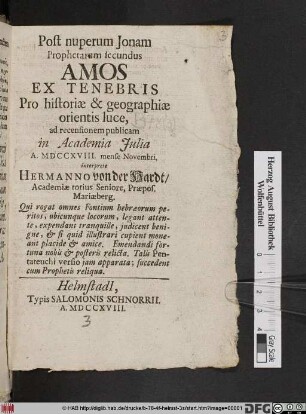 Post nuperum Jonam
Prophetarum secundus
AMOS
EX TENEBRIS
Pro historiæ & geographiæ
orientis luce,
ad recensionem publicam
in Academia Julia
A. MDCCXVIII. mense Novembri,
interprete
HERMANNO von der Hardt/
Academiæ totius Seniore, Præpos.
Mariæberg.
Qui rogat omnes Fontium hebræorum pe-
ritos, ubicunque locorum, legant atten-
te, expendant tranquille, judicent beni-
gne, & si quid illustrari cupiant mone-
ant placide & amice. Emendandi for-
tuna nobis & posteris relicta. Talis Pen-
tateuchi versio jam apparata; succedent
cum Prophetis reliqua.
Helmstadl,
Typis SALOMONIS SCHNORRII.
A. MDCCXVIII.
3
3
Herzog August Bibliothek
Wolfenbüttel
Gray Scale
© HAB http://diglib.hab.de/drucke/b-76-4f-helmst-3s/start.htm?image=00001
DFG